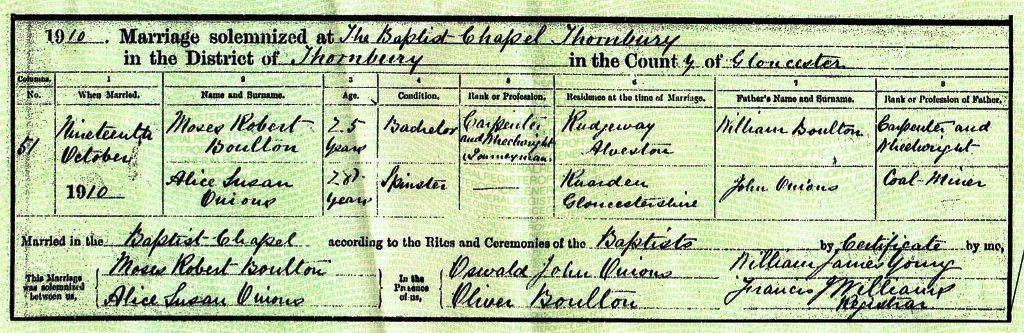 1910. Marriage solemnized at The Baptist Chapel Thornbury
in the District of Thornbury in the County of Gloucester
Columns. 1 2 3 4 5 6 7 8
No. When Married. Name and Surname. Age. Condition. Rank or Profession. Residence at the time of Marriage. Father's Name and Surname. Rank or Profession of Father.
51 Nineteenth October 1910
Moses Robert Boulton 25 years Bachelor Carpenter and Wheelwright (Journeyman) Rudgeway Alveston William Boulton Carpenter and Wheelwright
Alice Susan Onions 28 years Spinster —— Ruarden Gloucestershire John Onions Coal-Miner
Married in the Baptist Chapel according to the Rites and Ceremonies of the Baptists by Certificate by me,
This Marriage was solemnized between us,
Moses Robert Boulton
Alice Susan Onions
In the Presence of us,
Oswald John Onions
Oliver Boulton
William James
Francis J Williams
Registrar